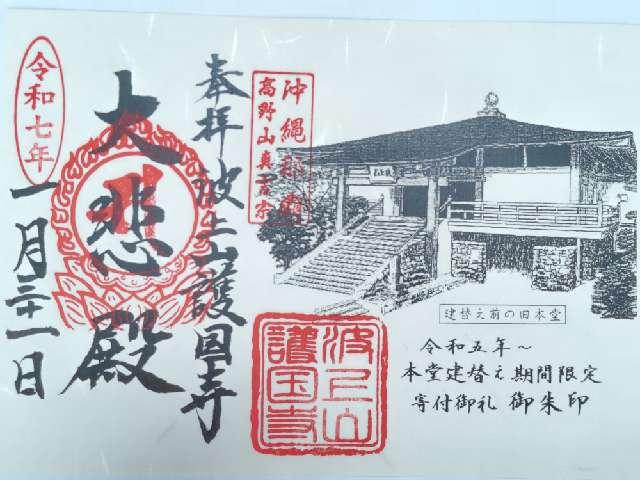 沖縄那覇
高野山真言宗
奉拝
波上山護国寺
大悲殿
令和七年
一月三十一日
波上山
護国寺
建替え前の旧本堂
令和五年～
本堂建替え期間限定
寄付御礼 御朱印